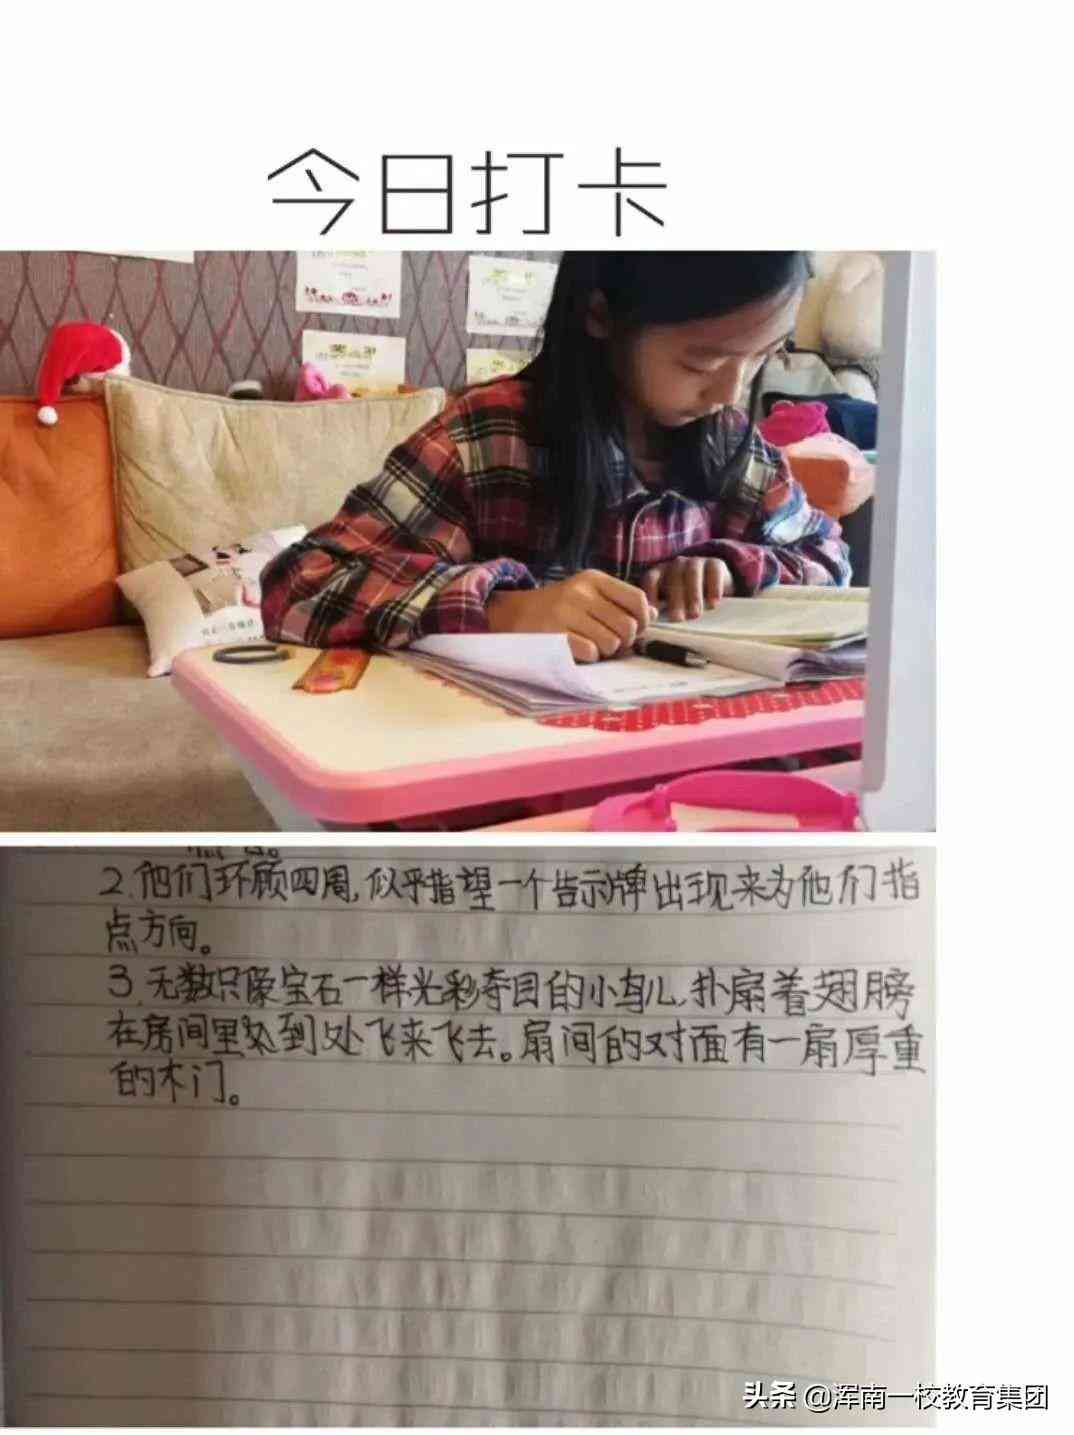 今日打卡
2.他们环顾四周,似乎指望一个告示牌出现来为他们指
点方向。
3.无数只像宝石一样光彩夺目的小鸟儿,扑扇着翅膀
在房间里处到处飞来飞去。扇间的对面有一扇厚重
的木门。
头条 @浑南一校教育集团